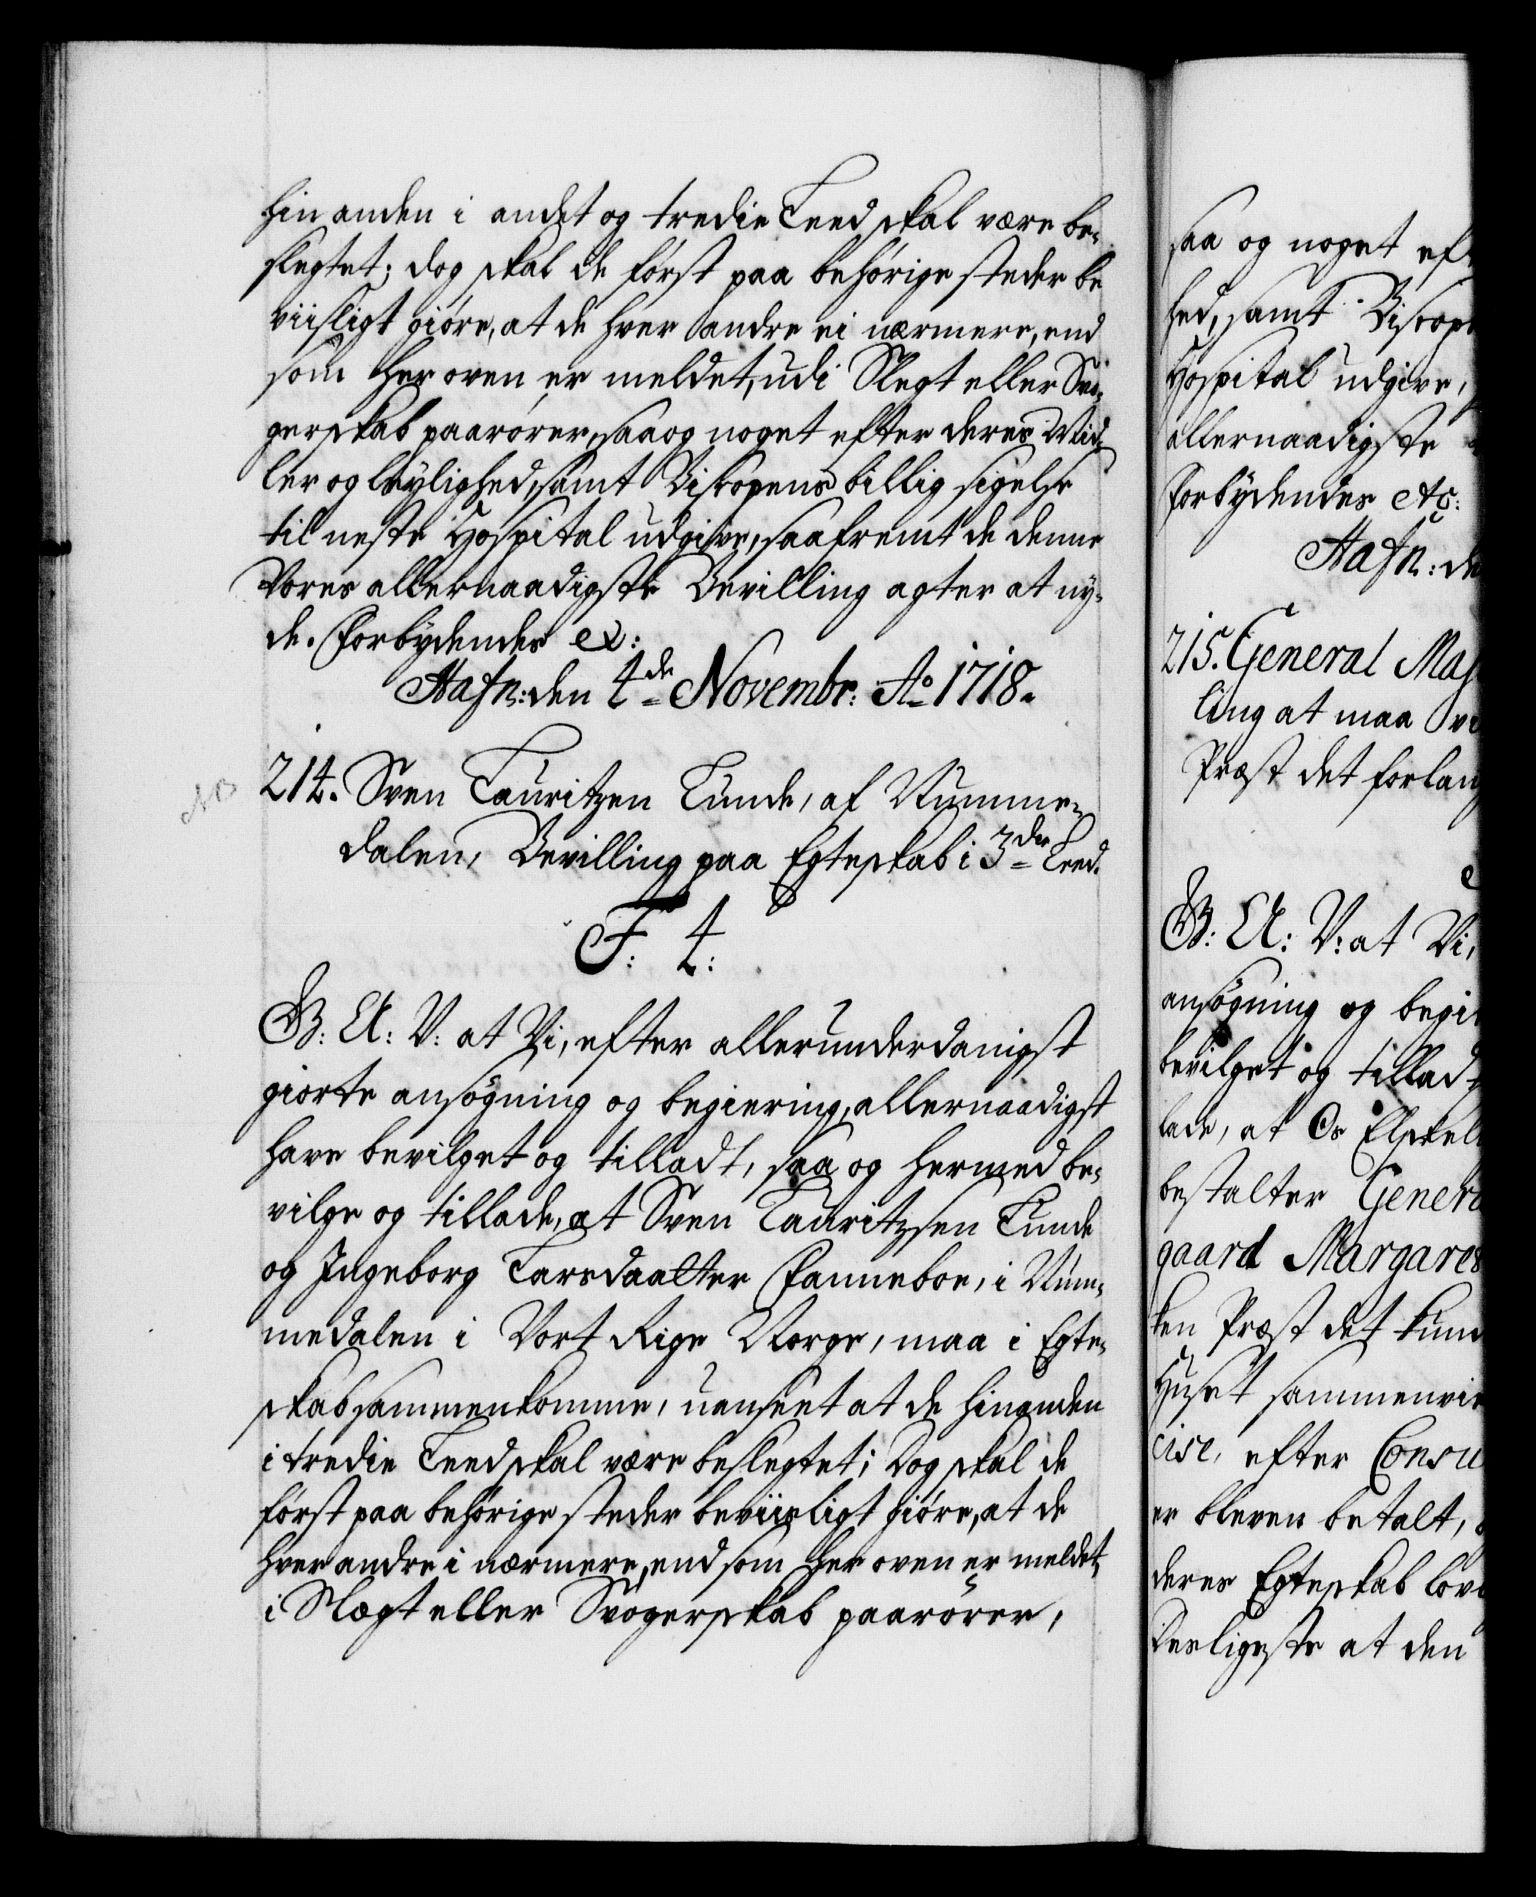 hinanden i andet og tredie Leed skal være be-
slegtet; dog skal de först paa behörige steder be
viisligt giöre, at de hver andre ei nærmere, end
som her oven er meldet, udi Slegt eller Svo-
gerskab paarörer, saa og noget efter deres Mid-
ler og leylighed, samt Biscopens billig sigelse
til neste Hospital udgive, saafremt de denne
Vores allernaadigste Bevilling agter at ny-
de. Forbydendes etc:
Hafn: den 4de Novembr: Ao 1718.
NB
214. Sven Lauritzen Lunde, af Numme-
dalen, Bevilling paa Egteskab i 3die Leed.
F. 4:
G: A: V: at Vi, efter allerunderdanigst
giorte ansögning og begiering, allernaadigst
have bevilget og tilladt, saa og hermed be-
vilge og tillade, at Sven Lauritzsen Lunde
og Ingeborg Larsdaatter Fanneboe, i Num-
medalen i Vort Rige Norge, maa i Egte-
skab sammenkomme, uanseet at de hinanden
i tredie Leed skal være beslegtet; Dog skal de
först paa behörige steder beviisligt giöre, at de
hver andre i nærmere, end som her oven er meldet,
i Slægt eller Svogerskab paarörer,
saa og noget eft
hed, samt Biscope
Hospital udgive,
allernaadigste
Forbydendes etc:
Hafn: de
215. General Maj
ling at maa vi
Præst det forlang
G: A: V: at Vi,
ansögning og begie
bevilget og tillad
lade, at Os Elskel
bestalter Genera
gaard Margaret
ken Præst det kun
Huset sammenvie
cise, efter Consu
er bleven betalt,
deres Egteskab lov
Desligeste at den